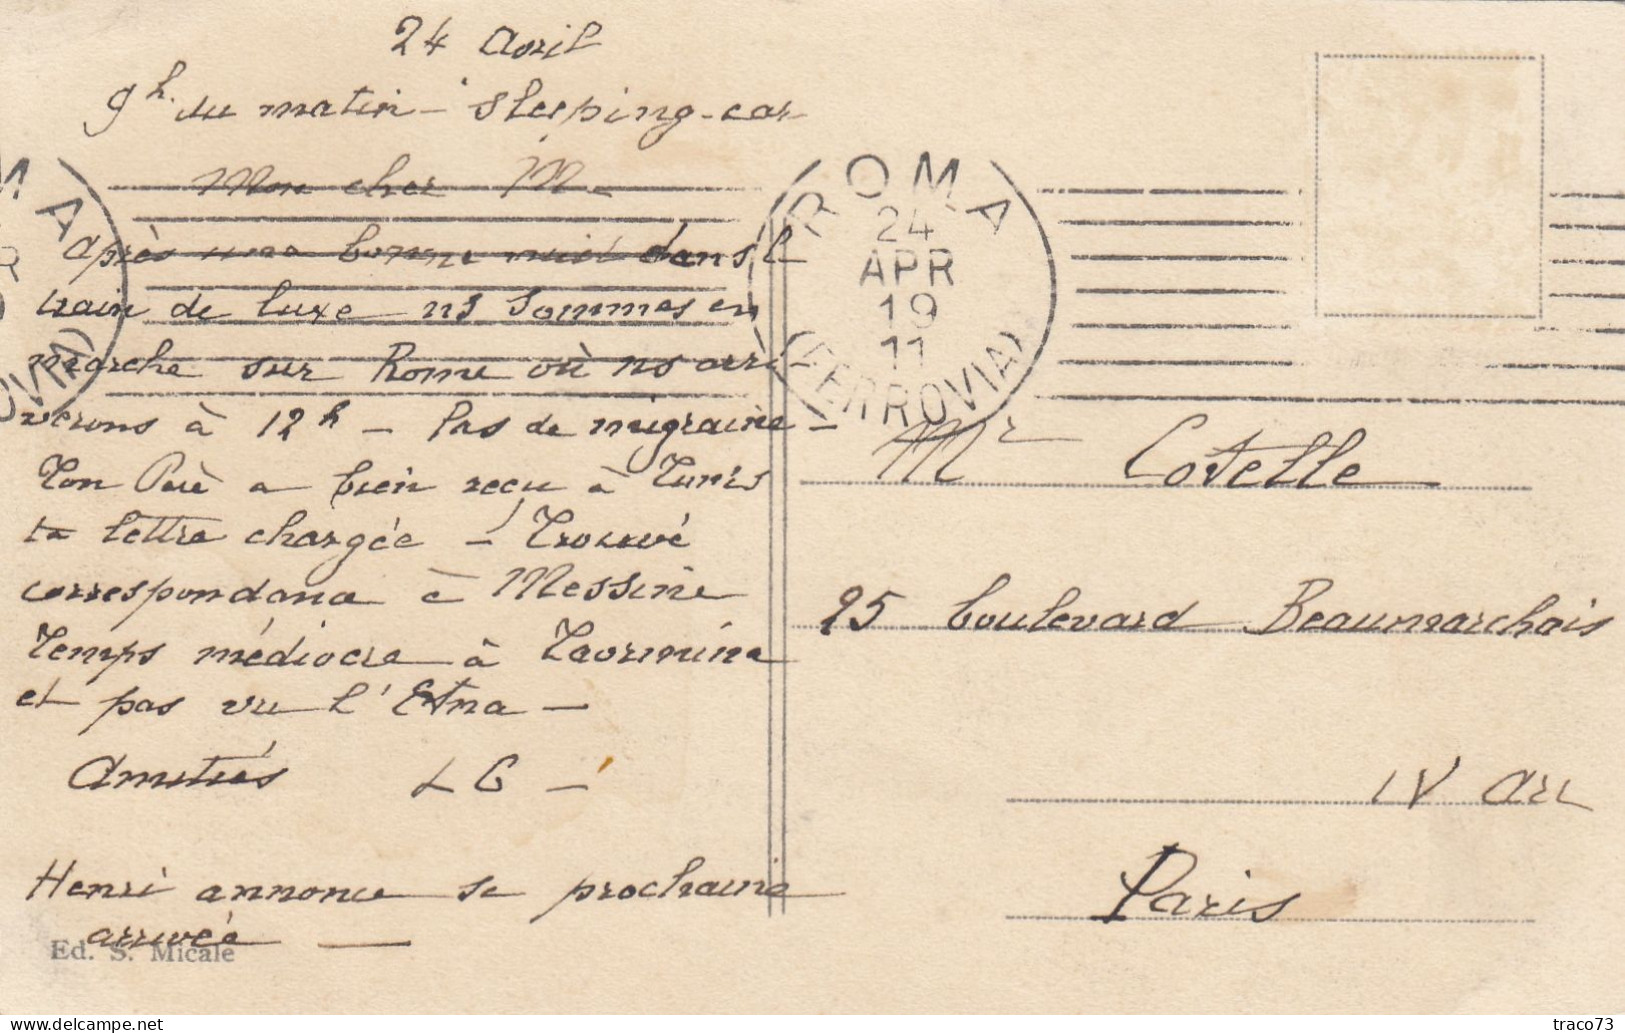 24 Avril
9h. du matin - Sleeping-car
Mon cher M -
Après une bonne nuit dans l
train de luxe ns sommes en
marche sur Rome où ns arri-
verons à 12h - Pas de migraine -
Ton Père a bien reçu à Tunis
ta lettre chargée - Trouvé
correspondance à Messine
Temps médiocre à Taormina
et pas vu l'Etna -
Amitiés LC -
Henri annonce sa prochaine
arrivée -
Ed. S. Micale
ROMA
24
APR
19
11
(FERROVIA)
Mr Cotelle
25 boulevard Beaumarchais
IV arr
Paris
MA
R
OVIA)
traco73